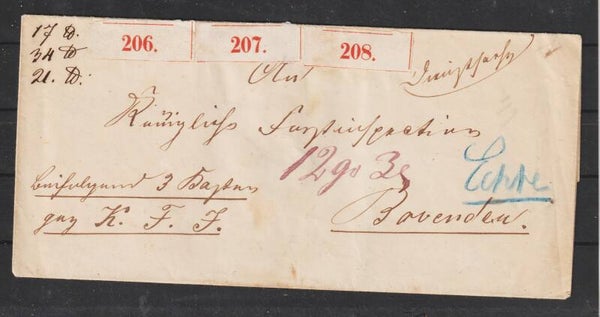 17 ℔.
34 ℔
21. ℔.
206. 207. 208.
An
Dienstsache
Königliche Forstinspection
12 gr 3
Echte
beifolgend 3 Kasten
gez K. F. J.
Bovenden.